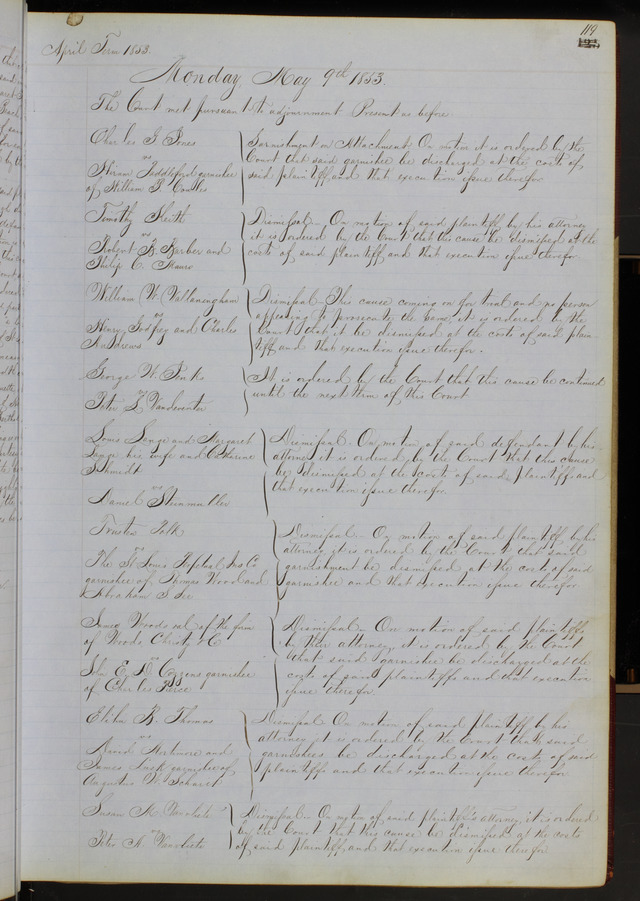 119
April Term 1853.
Monday, May 9th 1853.
The Court met pursuant to adjournment Present as before
Charles J. Jones
vs
Hiram garnishee
of William P.
Garnishment on Attachment. On motion it is ordered by the
Court that said garnishee be discharged at the costs of
said plaintiff, and that execution issue therefor
Timothy
vs
Robert B. Barber and
Philip C.
Dismissal On motion of said plaintiff by his attorney
it is ordered by the Court that this cause be dismissed at the
costs of said plaintiff and that execution issue therefor.
William W.
vs
Henry and Charles
Andrews
Dismissal This cause coming on for trial and no person
appearing to prosecute the same, it is ordered by the
Court that it be dismissed at the costs of said plain-
tiff, and that execution issue therefor.
George W.
vs
Peter L. Vandeventer
It is ordered by the Court that this cause be continued
until the next term of this Court
Louis Lange and Margaret
Lange his wife and Catharine
Schmidt
vs
Daniel
Dismissal. On motion of said defendant by his
attorney it is ordered by the Court that this cause
be dismissed at the costs of said plaintiffs and
that execution issue therefor.
Trusten Polk
vs
The St Louis Ins Co
garnishee of Thomas Wood and
Abraham S.
Dismissal On motion of said plaintiff by his
attorney, it is ordered by the Court that said
garnishment be dismissed at the costs of said
garnishee and that execution issue therefor
James Woods of the firm
of Woods Christy & Co
vs
John E. D. garnishee
of Charles Pierce
Dismissal On motion of said plaintiffs
by their attorney it is ordered by the Court
that said garnishee be discharged at the
costs of said plaintiffs and that execution
issue therefor.
Elihu B. Thomas
vs
and
James garnishees of
Augustus W.
Dismissal On motion of said plaintiff by his
attorney it is ordered by the Court that said
garnishees be discharged at the costs of said
plaintiffs and that execution issue therefor
Susan M.
vs
Peter A.
Dismissal On motion of said plaintiff's attorney, it is ordered
by the Court that this cause be dismissed at the costs
of said plaintiff, and that execution issue therefor